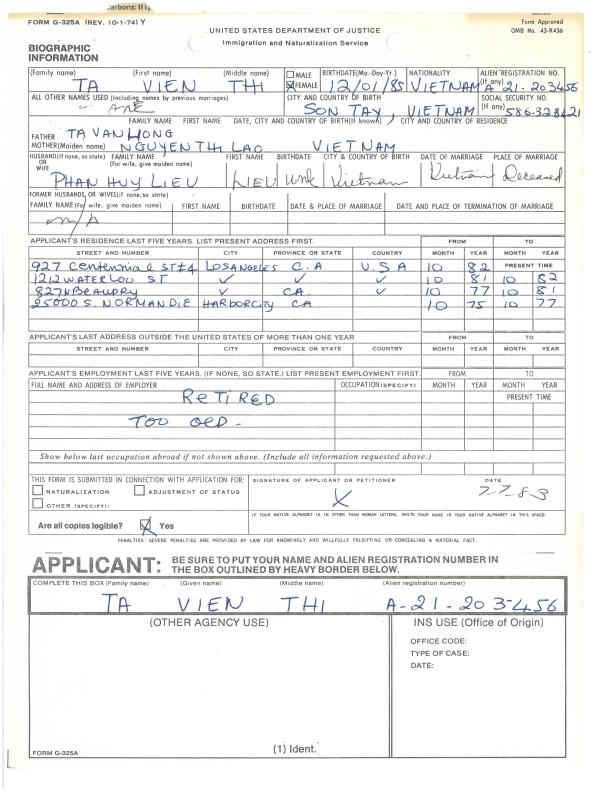 Carbons: If t
FORM G-325A (REV. 10-1-74) Y
Form Approved
OMB No. 43-R436
UNITED STATES DEPARTMENT OF JUSTICE
Immigration and Naturalization Service
BIOGRAPHIC
INFORMATION
(Family name) (First name) (Middle name) MALE FEMALE BIRTHDATE(Mo-Day-Yr.) NATIONALITY ALIEN REGISTRATION NO. (If any)
TA VIEN THI 12/01/85 VIETNAM A 21-203456
ALL OTHER NAMES USED (Including names by previous marriages) CITY AND COUNTRY OF BIRTH SOCIAL SECURITY NO. (If any)
SON TAY, VIETNAM 586-328421
FAMILY NAME FIRST NAME DATE, CITY AND COUNTRY OF BIRTH(If known) CITY AND COUNTRY OF RESIDENCE
FATHER TA VAN HONG
MOTHER(Maiden name) NGUYEN THI LAO VIETNAM
HUSBAND(If none, so state) OR WIFE FAMILY NAME (For wife, give maiden name) FIRST NAME BIRTHDATE CITY & COUNTRY OF BIRTH DATE OF MARRIAGE PLACE OF MARRIAGE
PHAN HUY LIEU LIEU unk Vietnam Vietnam Deceased
FORMER HUSBANDS OR WIVES(If none, so state)
FAMILY NAME (For wife, give maiden name) FIRST NAME BIRTHDATE DATE & PLACE OF MARRIAGE DATE AND PLACE OF TERMINATION OF MARRIAGE
n/A
APPLICANT'S RESIDENCE LAST FIVE YEARS. LIST PRESENT ADDRESS FIRST. FROM TO
STREET AND NUMBER CITY PROVINCE OR STATE COUNTRY MONTH YEAR MONTH YEAR
927 Centennial ST #4 LOS ANGELES C.A U.S A 10 82 PRESENT TIME
1212 WATERLOO ST ✓ ✓ ✓ 10 81 10 82
827 N BEAUDRY ✓ CA ✓ 10 77 10 81
25000 S. NORMANDIE HARBOR CITY CA 10 75 10 77
APPLICANT'S LAST ADDRESS OUTSIDE THE UNITED STATES OF MORE THAN ONE YEAR FROM TO
STREET AND NUMBER CITY PROVINCE OR STATE COUNTRY MONTH YEAR MONTH YEAR
APPLICANT'S EMPLOYMENT LAST FIVE YEARS. (IF NONE, SO STATE.) LIST PRESENT EMPLOYMENT FIRST. FROM TO
FULL NAME AND ADDRESS OF EMPLOYER OCCUPATION(SPECIFY) MONTH YEAR MONTH YEAR
PRESENT TIME
RETIRED
TOO OLD -
Show below last occupation abroad if not shown above. (Include all information requested above.)
THIS FORM IS SUBMITTED IN CONNECTION WITH APPLICATION FOR: SIGNATURE OF APPLICANT OR PETITIONER DATE
NATURALIZATION ADJUSTMENT OF STATUS X 7-7-83
OTHER (SPECIFY):
IF YOUR NATIVE ALPHABET IS IN OTHER THAN ROMAN LETTERS, WRITE YOUR NAME IN YOUR NATIVE ALPHABET IN THIS SPACE:
Are all copies legible? X Yes
PENALTIES: SEVERE PENALTIES ARE PROVIDED BY LAW FOR KNOWINGLY AND WILLFULLY FALSIFYING OR CONCEALING A MATERIAL FACT.
APPLICANT: BE SURE TO PUT YOUR NAME AND ALIEN REGISTRATION NUMBER IN
THE BOX OUTLINED BY HEAVY BORDER BELOW.
COMPLETE THIS BOX (Family name) (Given name) (Middle name) (Alien registration number)
TA VIEN THI A-21-203-456
(OTHER AGENCY USE) INS USE (Office of Origin)
OFFICE CODE:
TYPE OF CASE:
DATE:
FORM G-325A
(1) Ident.